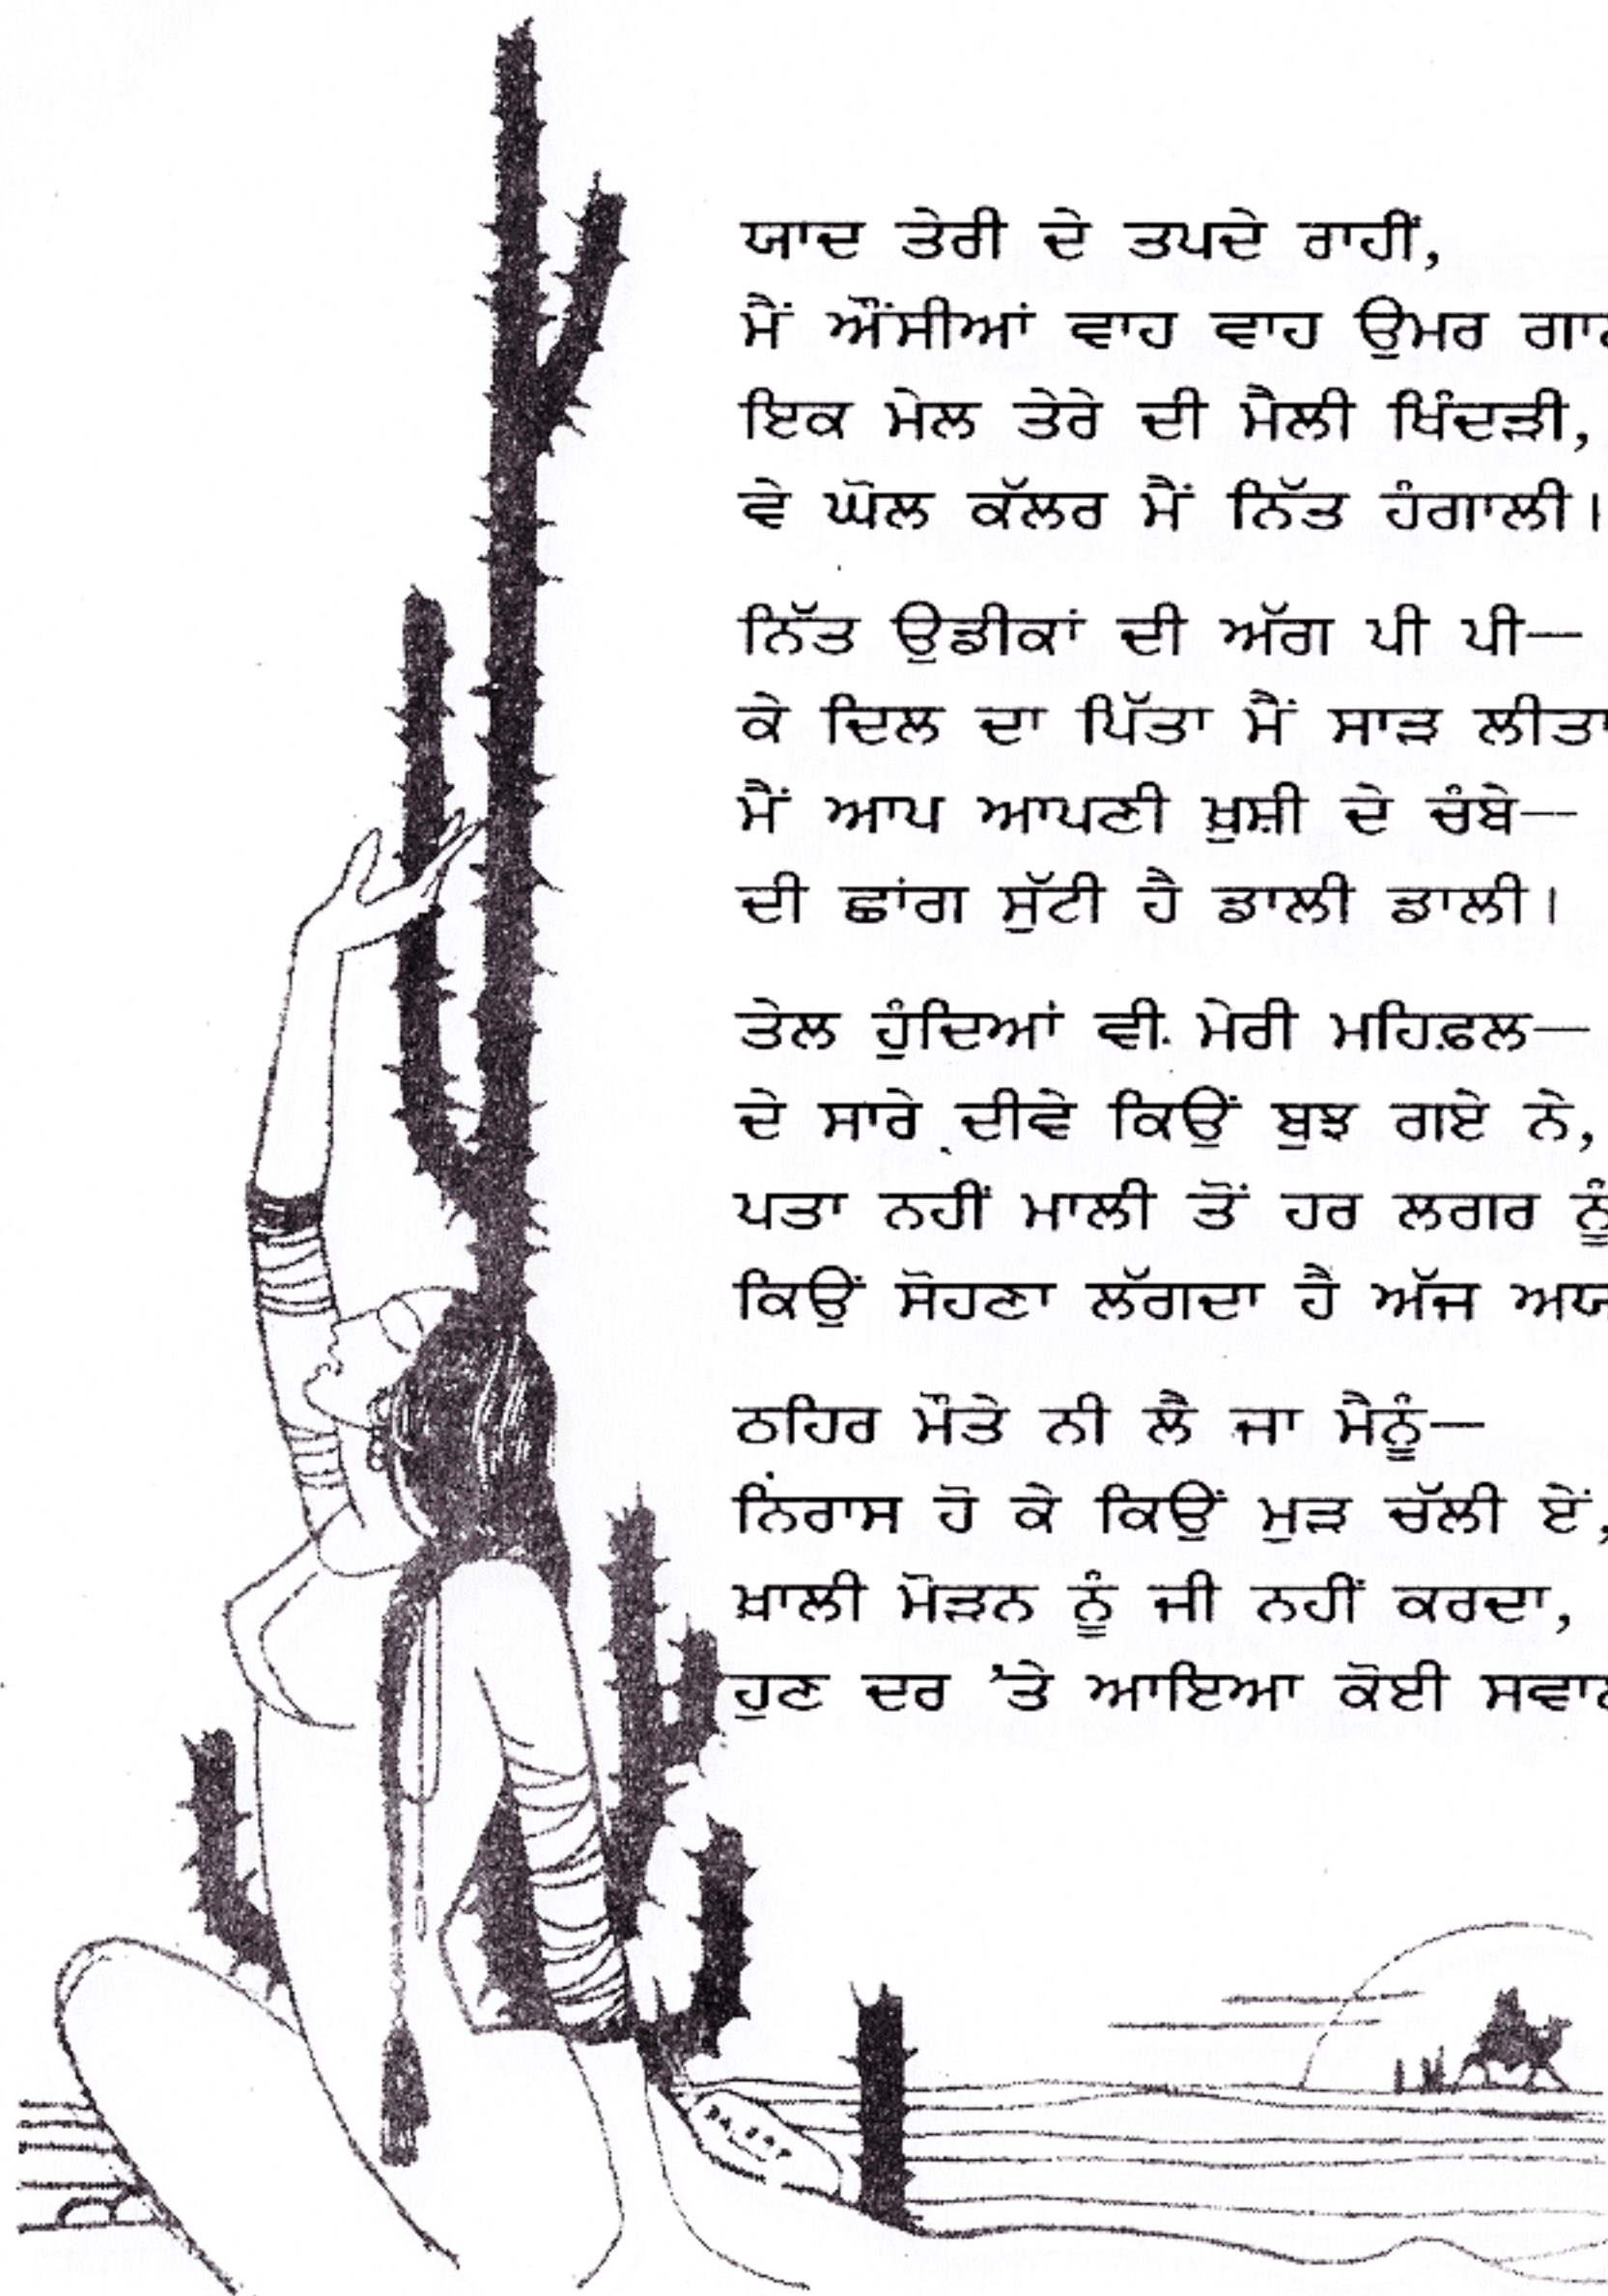 ਯਾਦ ਤੇਰੀ ਦੇ ਤਪਦੇ ਰਾਹੀਂ,
ਮੈਂ ਔਂਸੀਆਂ ਵਾਹ ਵਾਹ ਉਮਰ
ਇਕ ਮੇਲ ਤੇਰੇ ਦੀ ਮੈਲੀ ਖਿੰਦੜੀ,
ਵੇ ਘੋਲ ਕੱਲਰ ਮੈਂ ਨਿੱਤ ਹੰਗਾਲੀ।
ਨਿੱਤ ਉਡੀਕਾਂ ਦੀ ਅੱਗ ਪੀ ਪੀ—
ਕੇ ਦਿਲ ਦਾ ਪਿੱਤਾ ਮੈਂ ਸਾੜ ਲੀਤਾ
ਮੈਂ ਆਪ ਆਪਣੀ ਖ਼ੁਸ਼ੀ ਦੇ ਚੰਬੇ—
ਦੀ ਛਾਂਗ ਸੁੱਟੀ ਹੈ ਡਾਲੀ ਡਾਲੀ।
ਤੇਲ ਹੁੰਦਿਆਂ ਵੀ ਮੇਰੀ ਮਹਿਫ਼ਲ—
ਦੇ ਸਾਰੇ ਦੀਵੇ ਕਿਉਂ ਬੁਝ ਗਏ ਨੇ,
ਪਤਾ ਨਹੀਂ ਮਾਲੀ ਤੋਂ ਹਰ ਲਗਰ ਨੂੰ
ਕਿਉਂ ਸੋਹਣਾ ਲੱਗਦਾ ਹੈ ਅੱਜ
ਠਹਿਰ ਮੌਤੇ ਨੀ ਲੈ ਜਾ ਮੈਨੂੰ—
ਨਿਰਾਸ ਹੋ ਕੇ ਕਿਉਂ ਮੁੜ ਚੱਲੀ ਏਂ,
ਖ਼ਾਲੀ ਮੋੜਨ ਨੂੰ ਜੀ ਨਹੀਂ ਕਰਦਾ,
ਹੁਣ ਦਰ 'ਤੇ ਆਇਆ ਕੋਈ